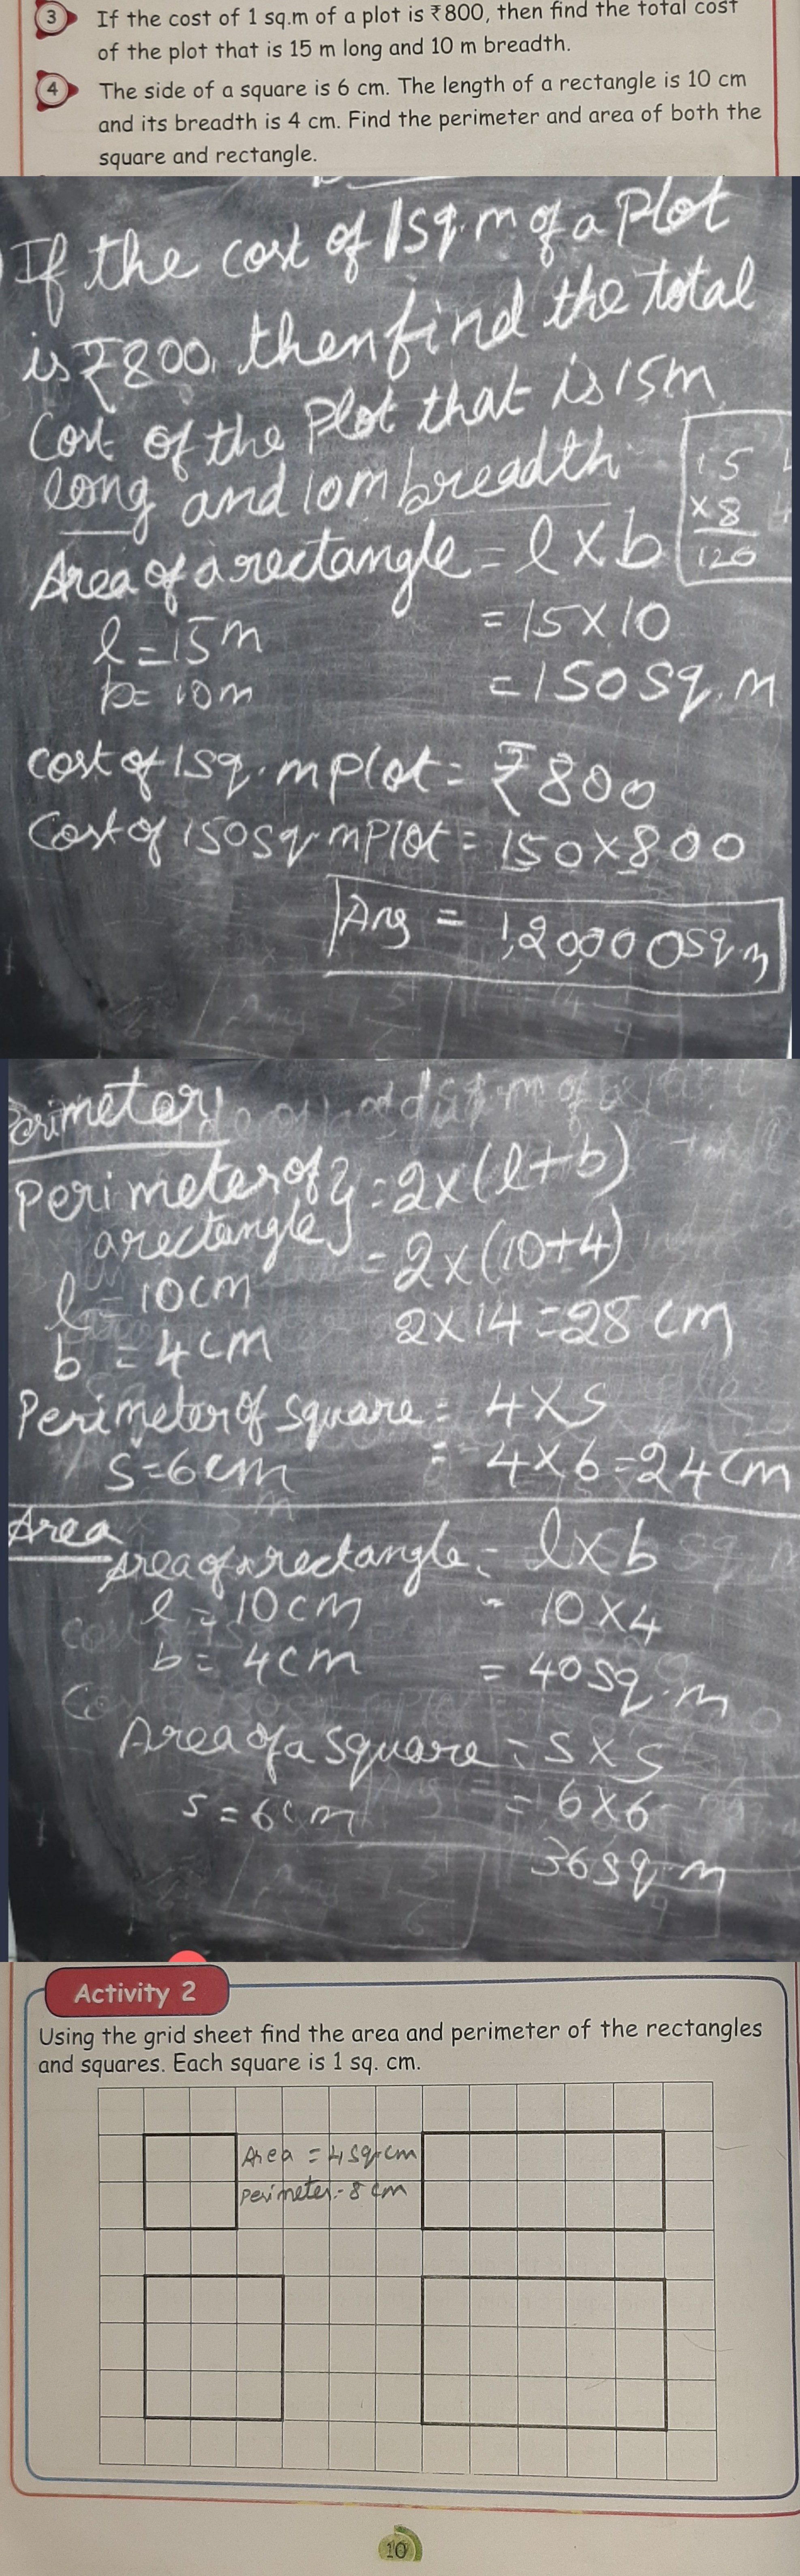 3 If the cost of 1 sq.m of a plot is ₹800, then find the total cost
of the plot that is 15 m long and 10 m breadth.
4 The side of a square is 6 cm. The length of a rectangle is 10 cm
and its breadth is 4 cm. Find the perimeter and area of both the
square and rectangle.
If the cost of 1sq.m of a Plot
is ₹800, then find the total
Cost of the Plot that is 15m
long and 10m breadth
15
×8
120
Area of a rectangle = l × b
l = 15m = 15 × 10
b = 10m = 150 Sq. m
cost of 1Sq. m plot = ₹800
Cost of 150Sq m Plot = 150×800
Ans = 1,20,000 sq.m
erimeter
Perimeter of } = 2×(l+b)
a rectangle = 2×(10+4)
l = 10cm
b = 4cm 2×14 = 28 cm
Perimeter of square = 4×S
S=6cm = 4×6=24cm
Area
Area of a rectangle = l×b
l = 10cm = 10×4
b = 4cm = 40 Sq. m
Area of a square = S×S
s = 6cm = 6×6
36 Sq m
Activity 2
Using the grid sheet find the area and perimeter of the rectangles
and squares. Each square is 1 sq. cm.
Area = 4 sq.cm
perimeter - 8 cm
10